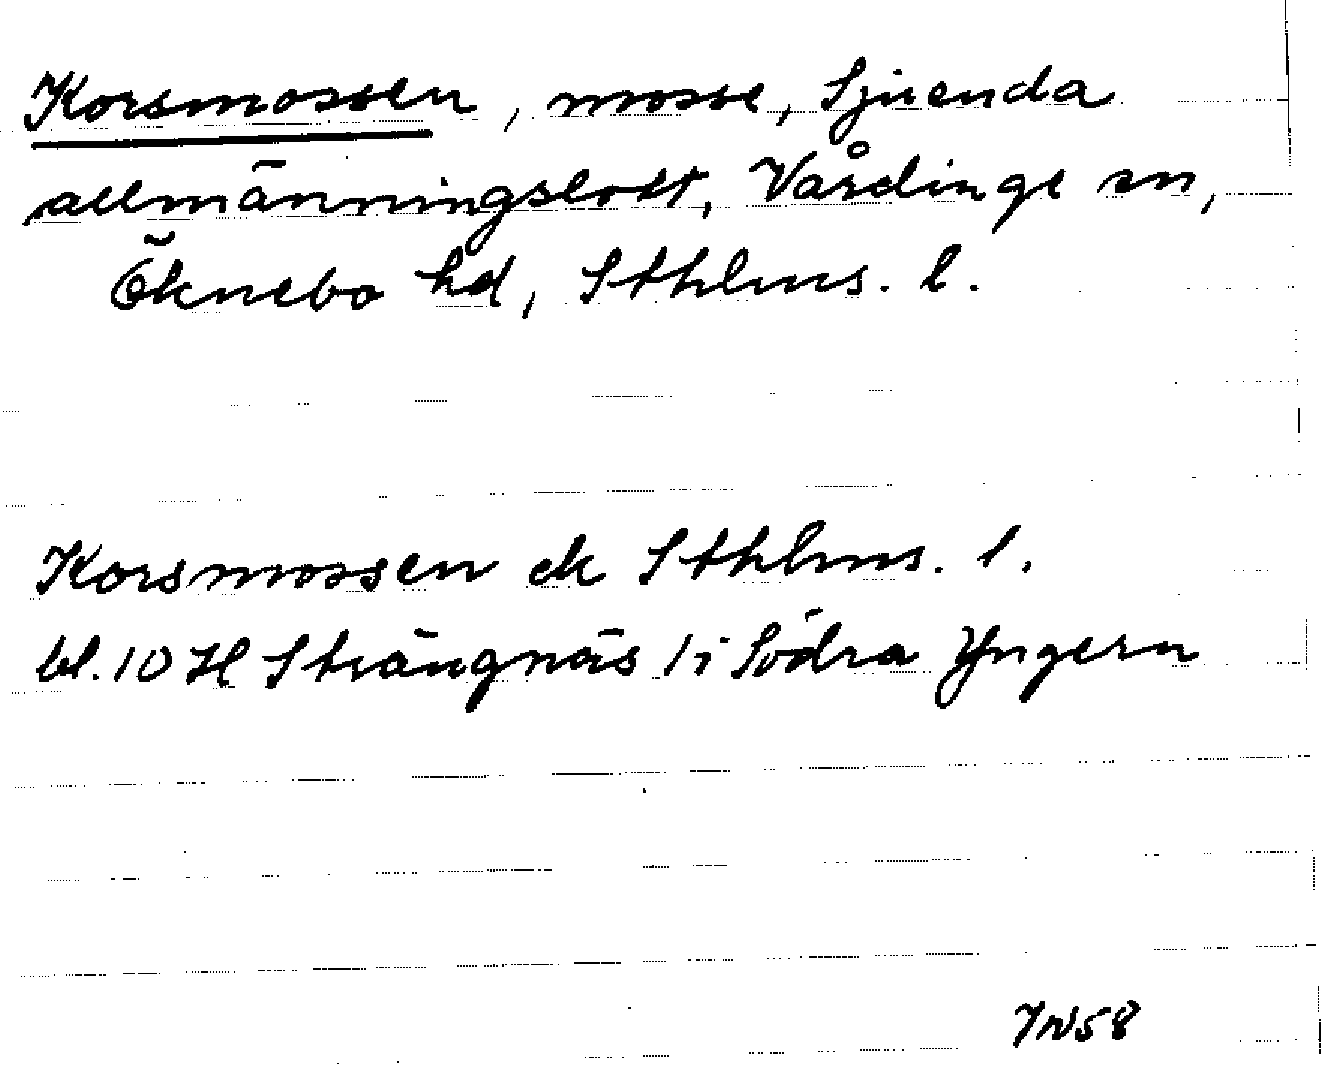 Korsmossen, mosse, Sjuenda
allmänningslott, Vårdinge sn,
Öknebo hd, Sthlms. l.
Korsmossen ek Sthlms. l.
bl. 10 H Strängnäs 1i Södra Yngern
7N58